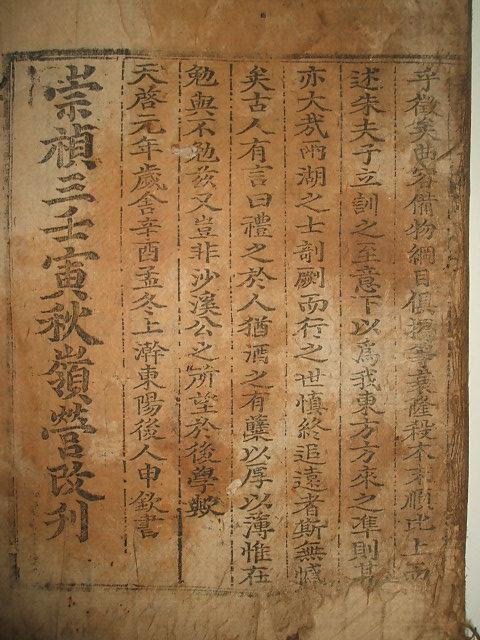 乎微矣曲容備物綱目俱衰隆殺不順上而
述朱夫子立訓之至意下以爲我東方方來之準則其
亦大哉兩湖之士剞劂而行之世慎終追遠者斯無憾
矣古人有言曰禮之於人猶酒之有糵以厚以薄惟在
勉與不勉玆又豈非沙溪公之所望於後學歟
天啓元年歲舍辛酉孟冬上澣東陽後人申欽書
崇禎三壬寅秋嶺營改刊